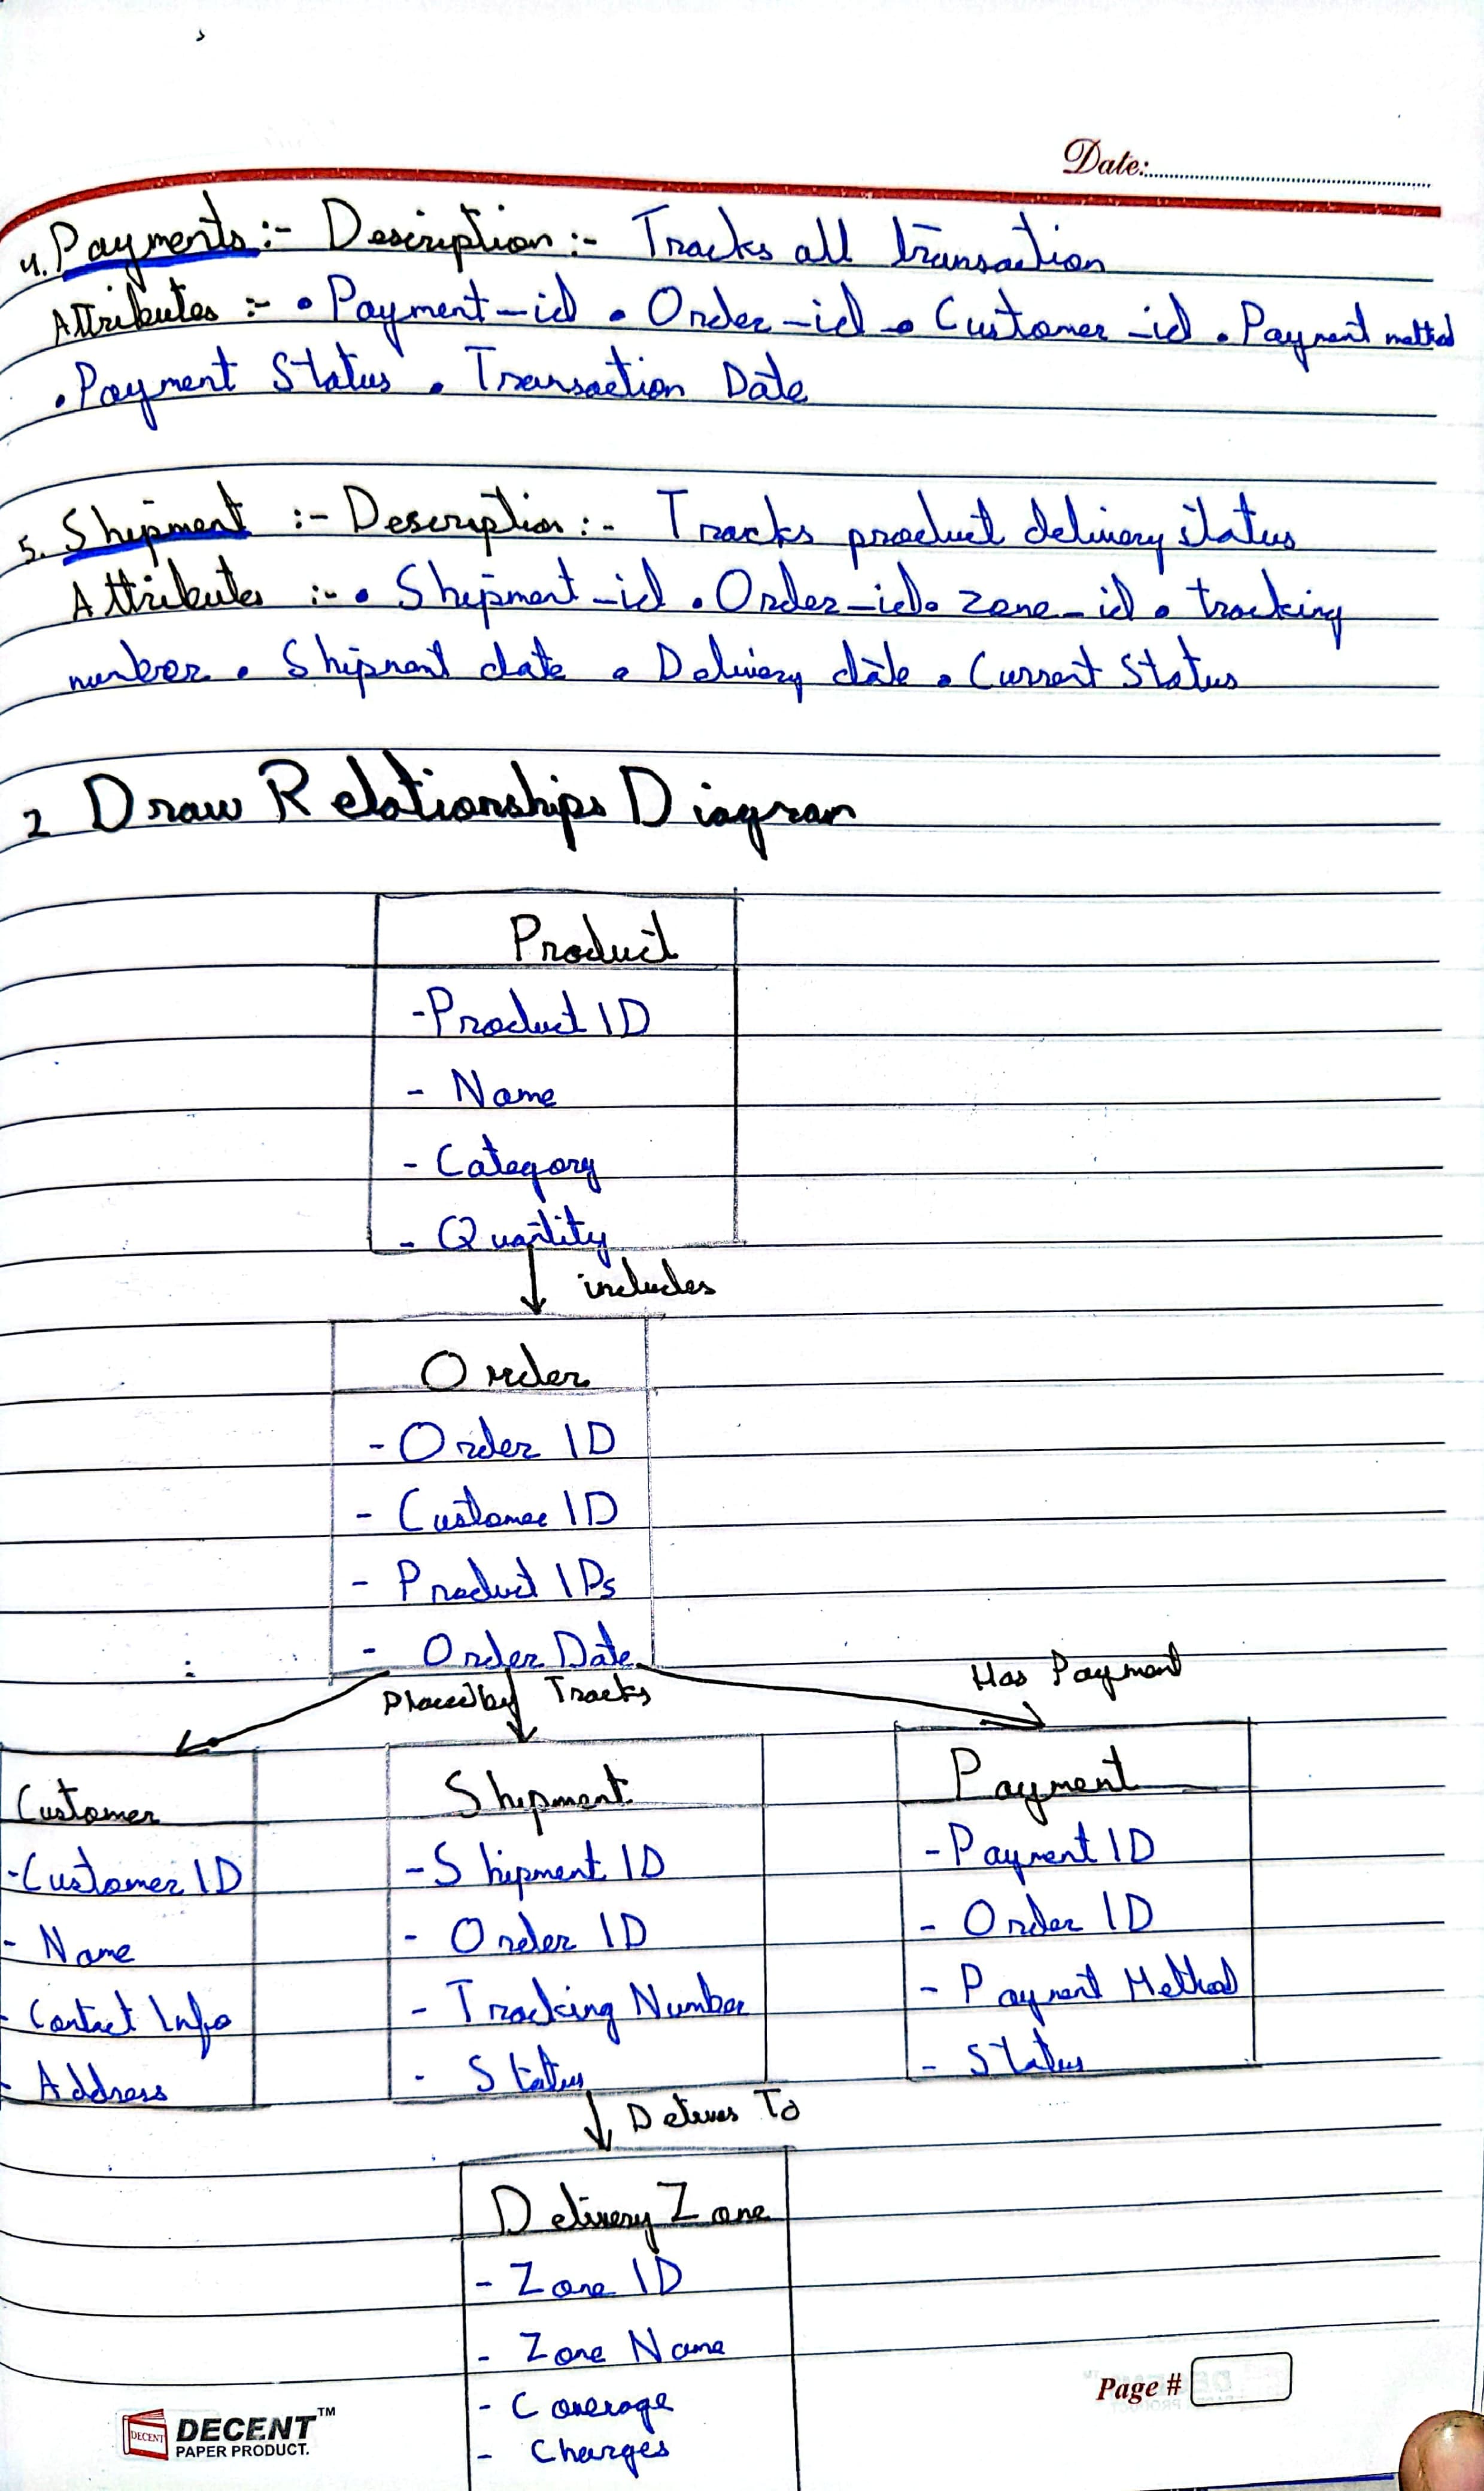 Date:
4. Payments :- Description :- Tracks all transaction
Attributes :- • Payment-id • Order-id • Customer-id • Payment method
• Payment Status • Transaction Date
5. Shipment :- Description :- Tracks product delivery status
Attributes :- • Shipment-id • Order-id • zone-id • tracking
number • Shipment date • Delivery date • Current Status
2 Draw Relationships Diagram
Product
- Product ID
- Name
- Category
- Quantity
includes
Order
- Order ID
- Customer ID
- Product IDs
- Order Date
Placed by Tracks Has Payment
Customer
- Customer ID
- Name
- Contact Info
- Address
Shipment
- Shipment ID
- Order ID
- Tracking Number
- Status
Payment
- Payment ID
- Order ID
- Payment Method
- Status
Delivers To
Delivery Zone
- Zone ID
- Zone Name
- Coverage
- Charges
Page #
DECENT
DECENT™
PAPER PRODUCT.